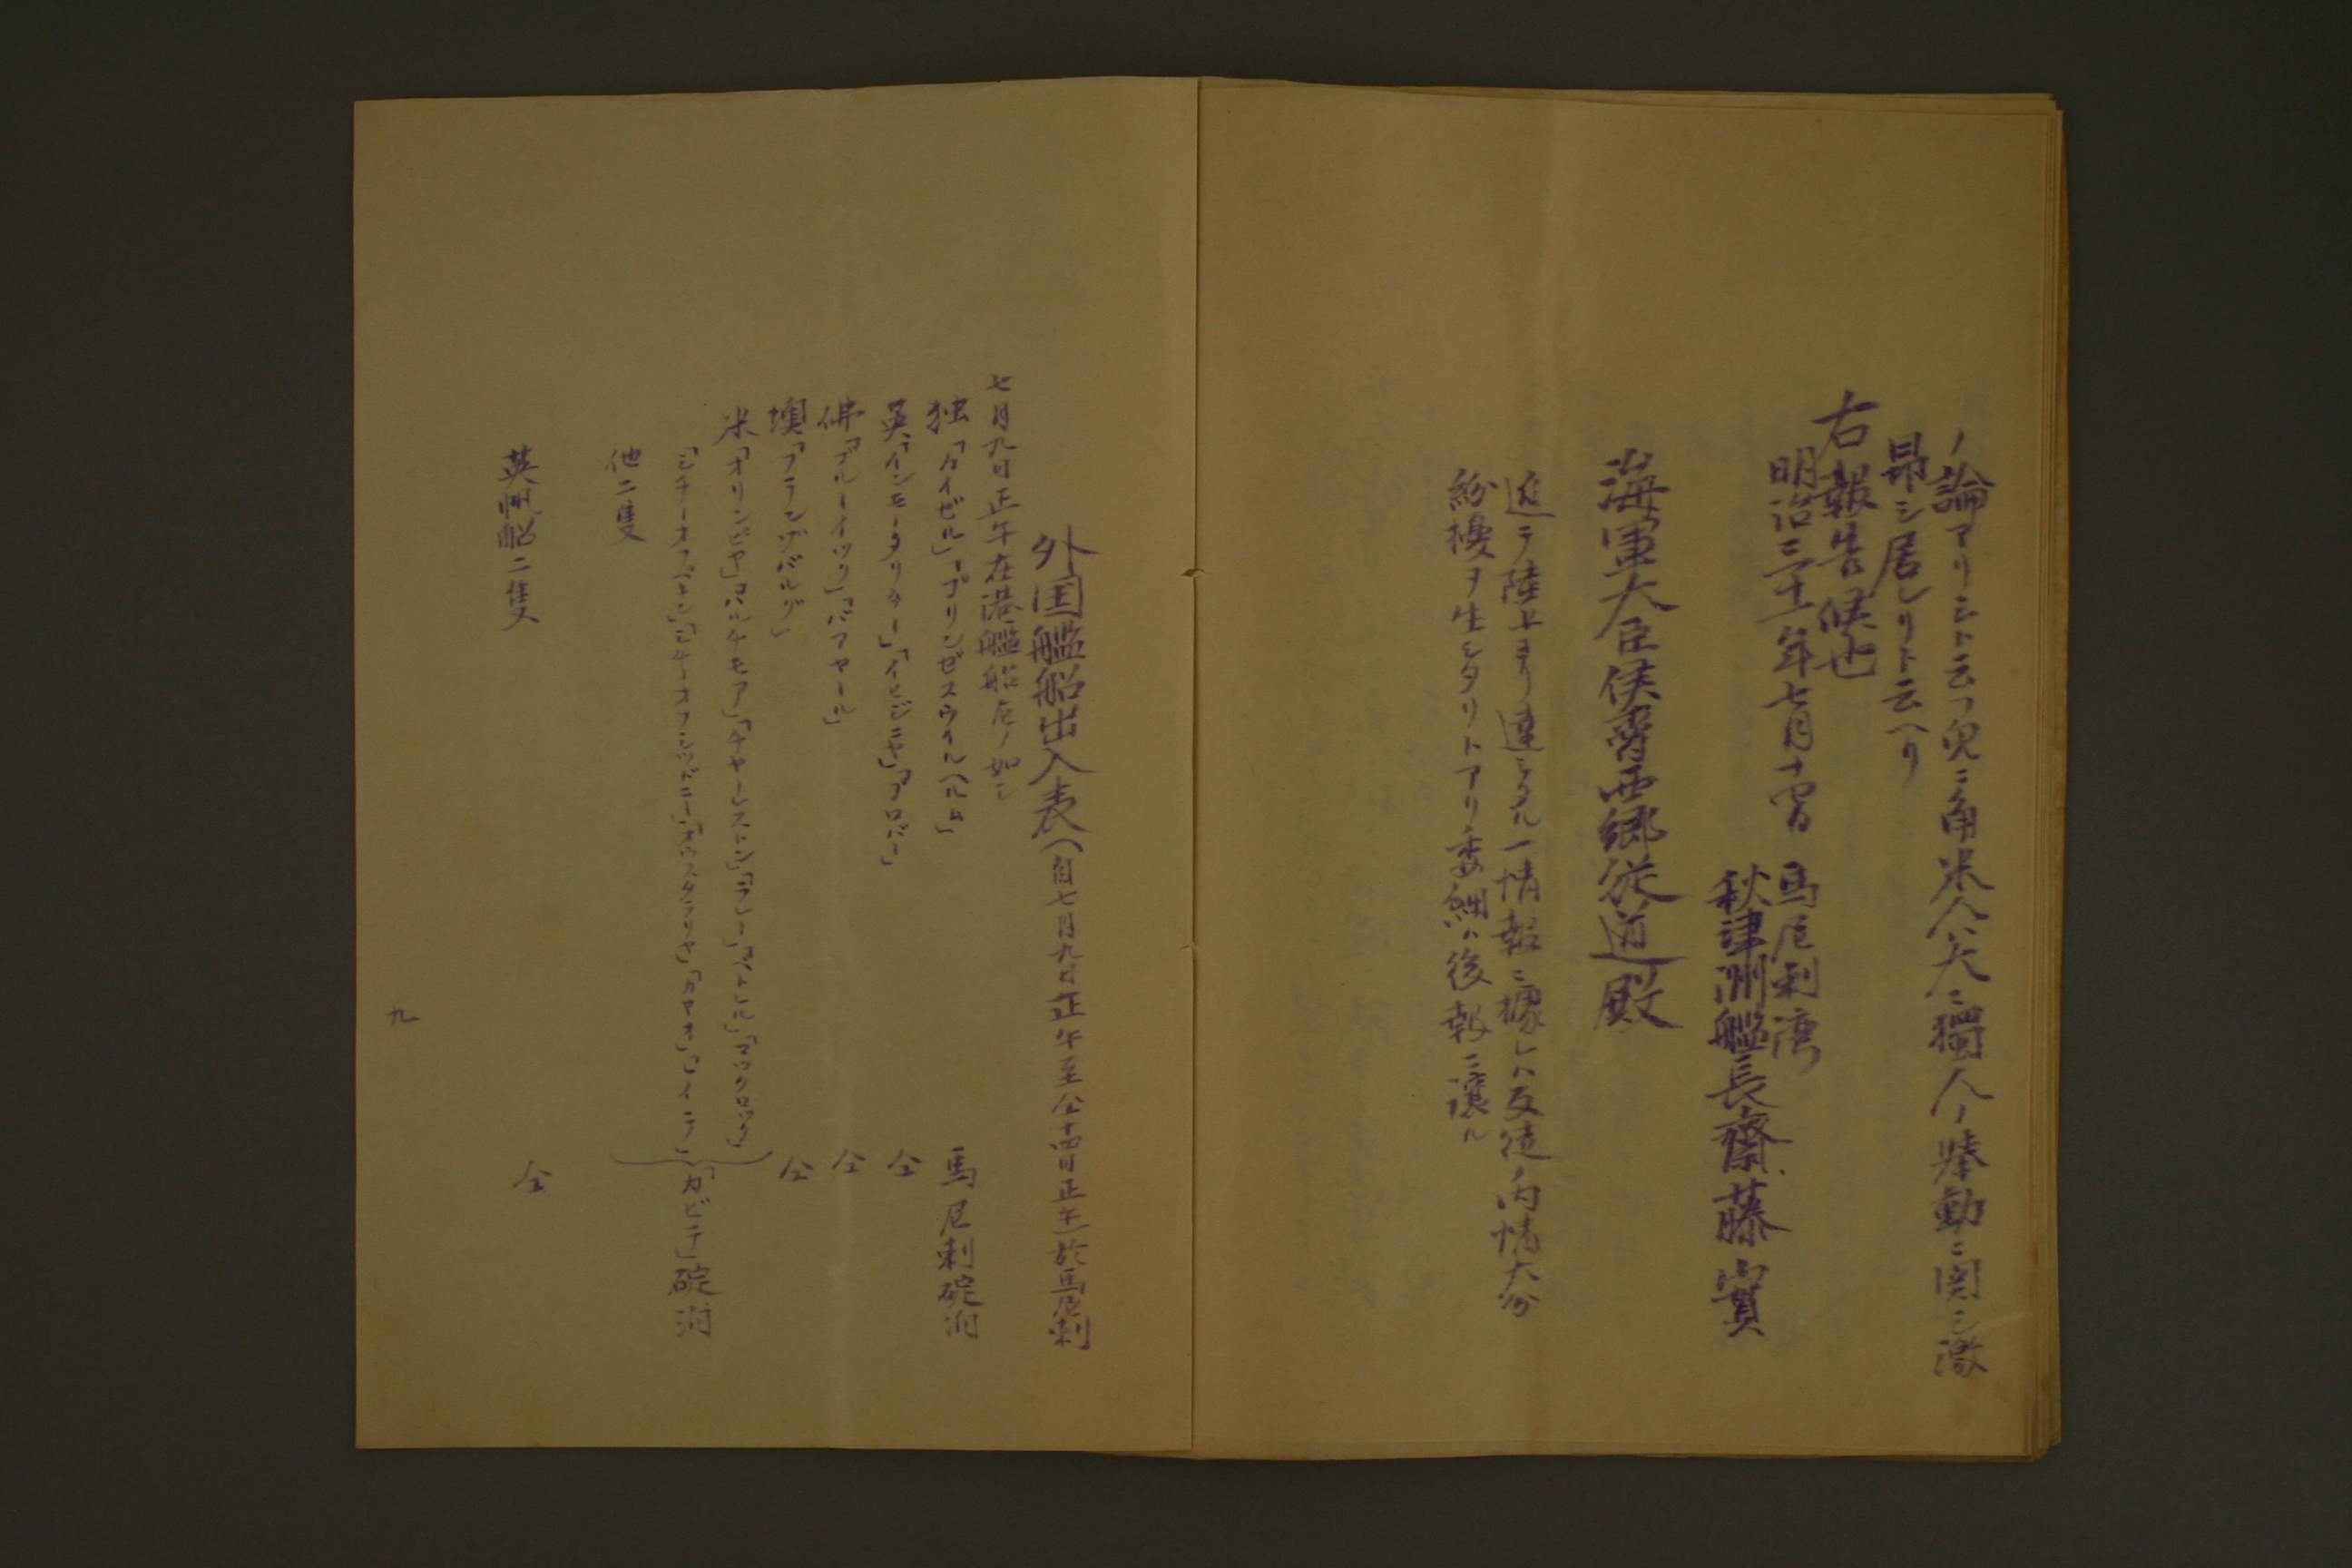 ノ論アリシト云フ兎ニ角米人ハ大ニ獨人ノ挙動ニ関シ激
昂シ居レリト云ヘリ
右報告候也
明治三十一年七月十四日 馬尼剌湾
秋津洲艦長齋藤實
海軍大臣侯爵西郷従道殿
追テ陸上ヨリ達シタル一情報ニ據レハ反徒ノ内情大分
紛擾ヲ生シタリトアリ委細ハ後報ニ譲ル
外国艦船出入表(自七月九日正午至仝十四日正午於馬尼剌
七月九日正午在港艦船左ノ如シ
独「カイゼル」「プリンゼスウイルヘルム」 馬尼剌碇泊
英「インモータリター」「イヒジニヤ」「プロバー」 仝
佛「ブルーイツク」「バアヤール」 仝
墺「フランヅバルグ」 仝
米「オリンピヤ」「バルチモア」「チヤーレストン」「ラレー」「ペトレル」「マツクロツク」
「シチーオフペキン」「シチーオフシツドニー」「オウスタラリヤ」「カヤオ」「レイテ」 「カビテ」碇泊
他二隻
英帆船二隻 仝
九